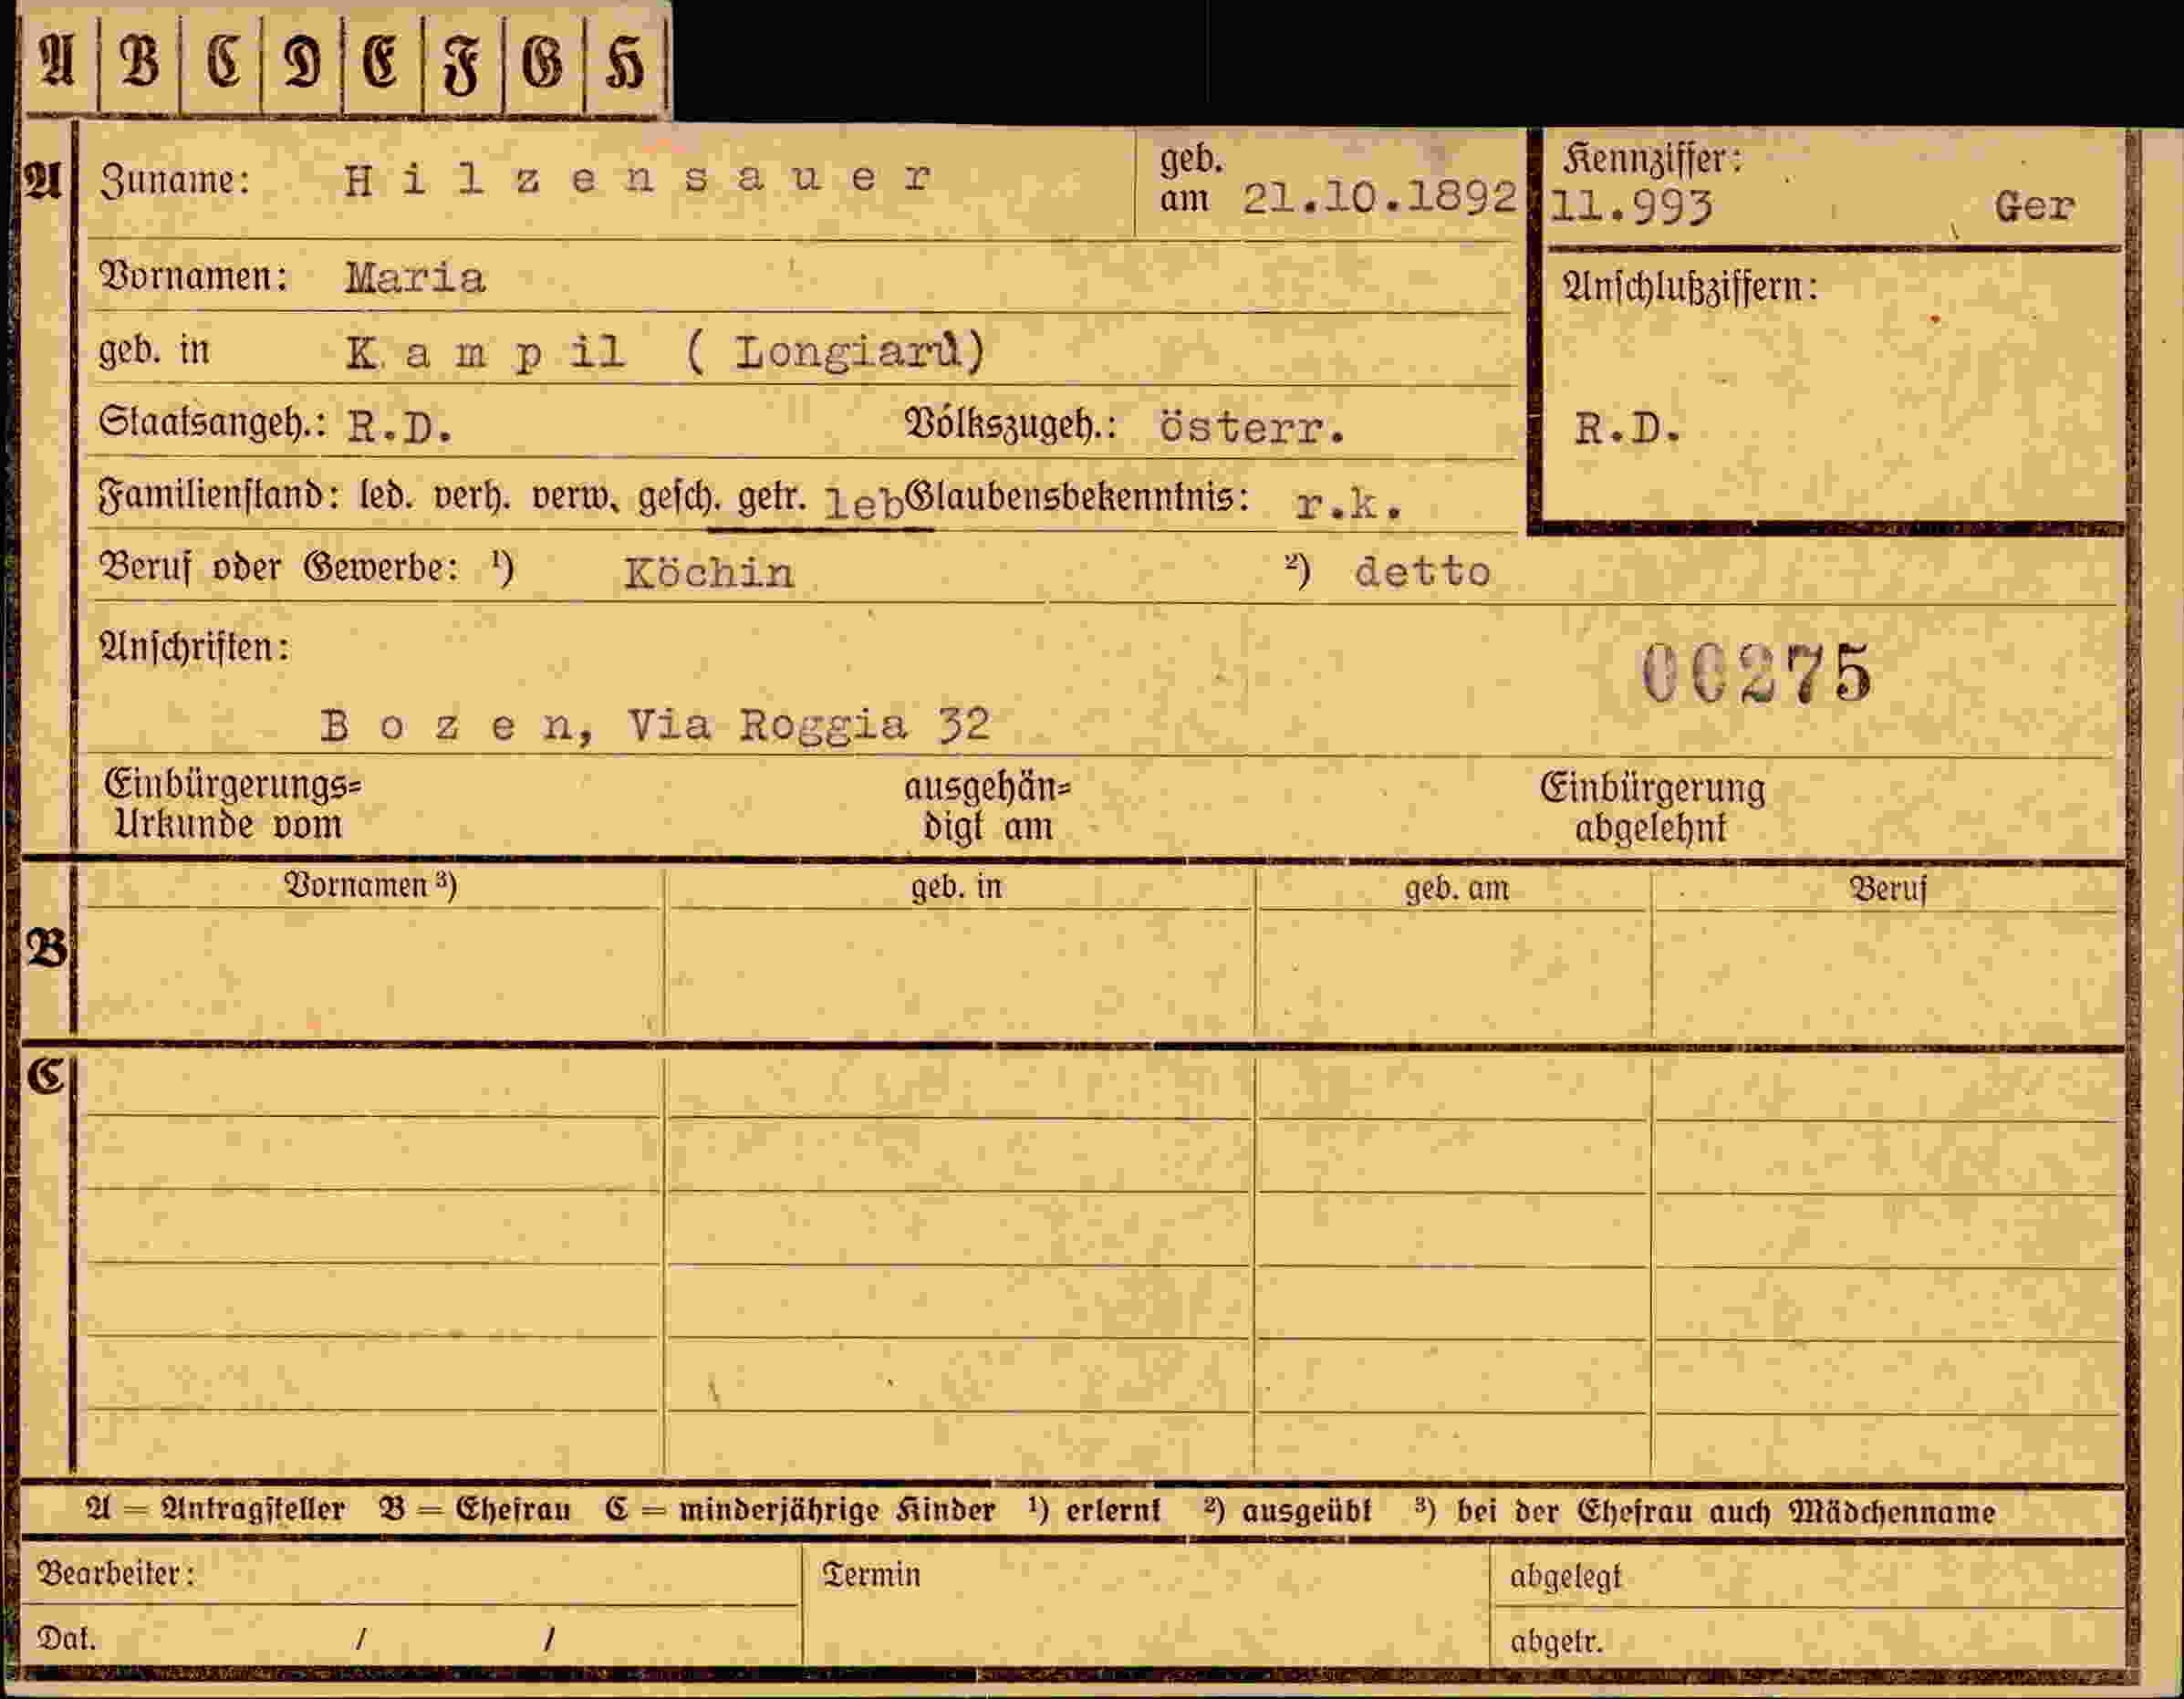 A B C D E F G H
A Zuname: Hilzensauer geb. am 21.10.1892 Kennziffer: 11.993 Ger
Vornamen: Maria
Anschlußziffern:
geb. in Kampil ( Longiarù)
Staatsangeh.: R.D. Volkszugeh.: österr. R.D.
Familienstand: led. verh. verw. gesch. getr. leb Glaubensbekenntnis: r.k.
Beruf oder Gewerbe: ¹) Köchin ²) detto
Anschriften:
00275
Bozen, Via Roggia 32
Einbürgerungs= ausgehän= Einbürgerung
Urkunde vom digt am abgelehnt
Vornamen ³) geb. in geb. am Beruf
B
C
A = Antragsteller B = Ehefrau C = minderjährige Kinder ¹) erlernt ²) ausgeübt ³) bei der Ehefrau auch Mädchenname
Bearbeiter: Termin abgelegt
Dat. / / abgetr.